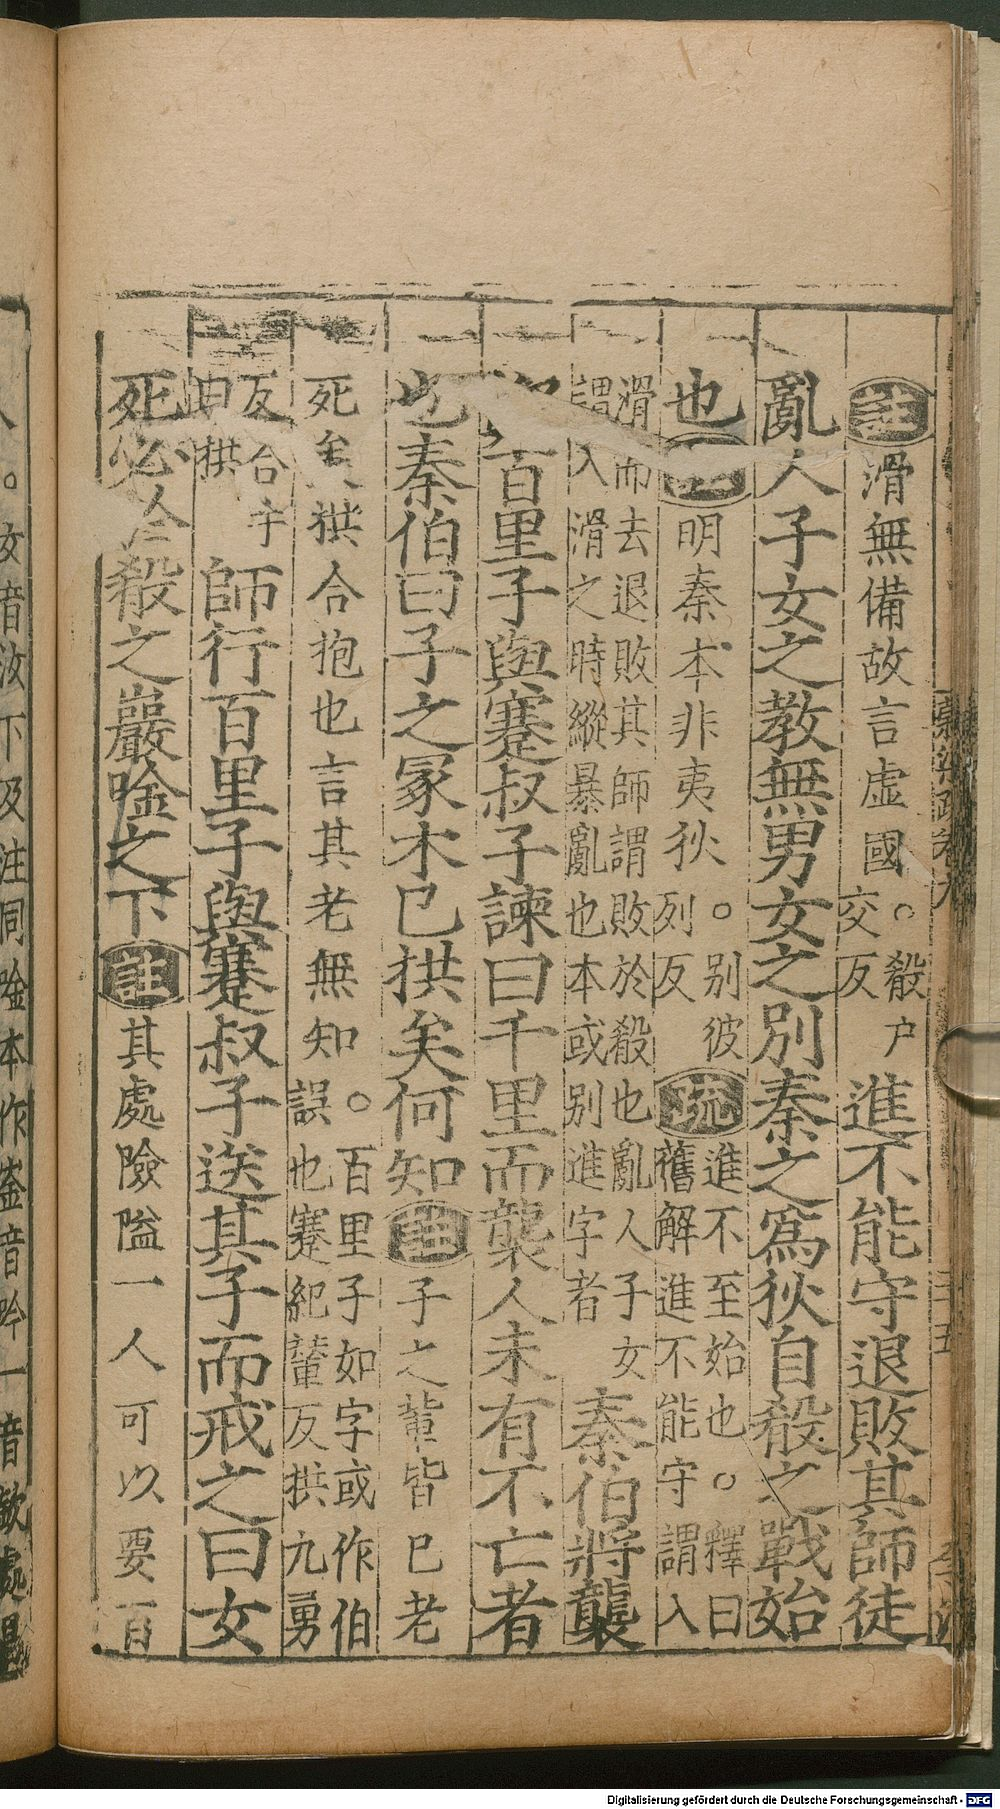 註滑無備故言虛國。殽户交反進不能守退敗其師徒
亂人子女之教無男女之別秦之爲狄自殽之戰始
也明秦本非夷狄。别彼列反疏進不至始也。釋曰舊解進不能守謂入
滑而去退敗其師謂敗於殽也亂人子女謂入滑之時縱暴亂也本或别進字者秦伯將襲
百里子與蹇叔子諫曰千里而襲人未有不亡者
也秦伯曰子之冢木已拱矣何知註子之輩皆已老
死矣拱合抱也言其老無知。百里子如字或作伯誤也蹇紀輦反拱九勇
反合手曰拱師行百里子與蹇叔子送其子而戒之曰女
死必殽之巖唫之下註其處險隘一人可以要百
穀梁疏卷九
二十五
人。女音汝下及注同唫本作崟音吟一音欽處
Digitalisierung gefördert durch die Deutsche Forschungsgemeinschaft - DFG